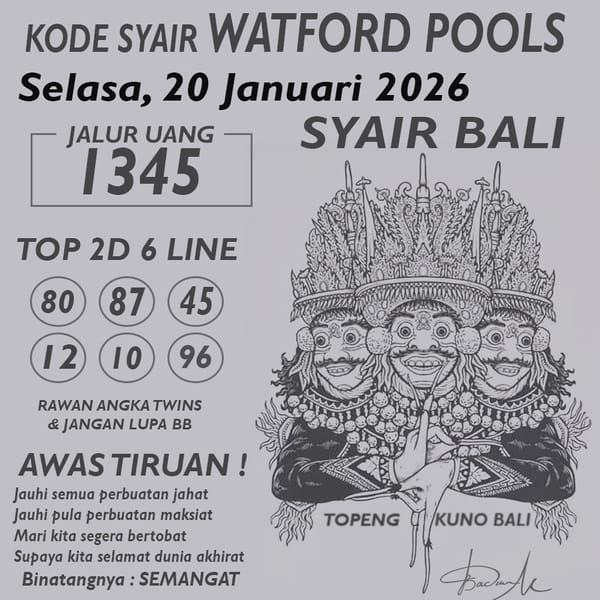 KODE SYAIR WATFORD POOLS
Selasa, 20 Januari 2026
JALUR UANG
1345
SYAIR BALI
TOP 2D 6 LINE
80 87 45
12 10 96
RAWAN ANGKA TWINS
& JANGAN LUPA BB
AWAS TIRUAN !
Jauhi semua perbuatan jahat
Jauhi pula perbuatan maksiat
Mari kita segera bertobat
Supaya kita selamat dunia akhirat
Binatangnya : SEMANGAT
TOPENG KUNO BALI